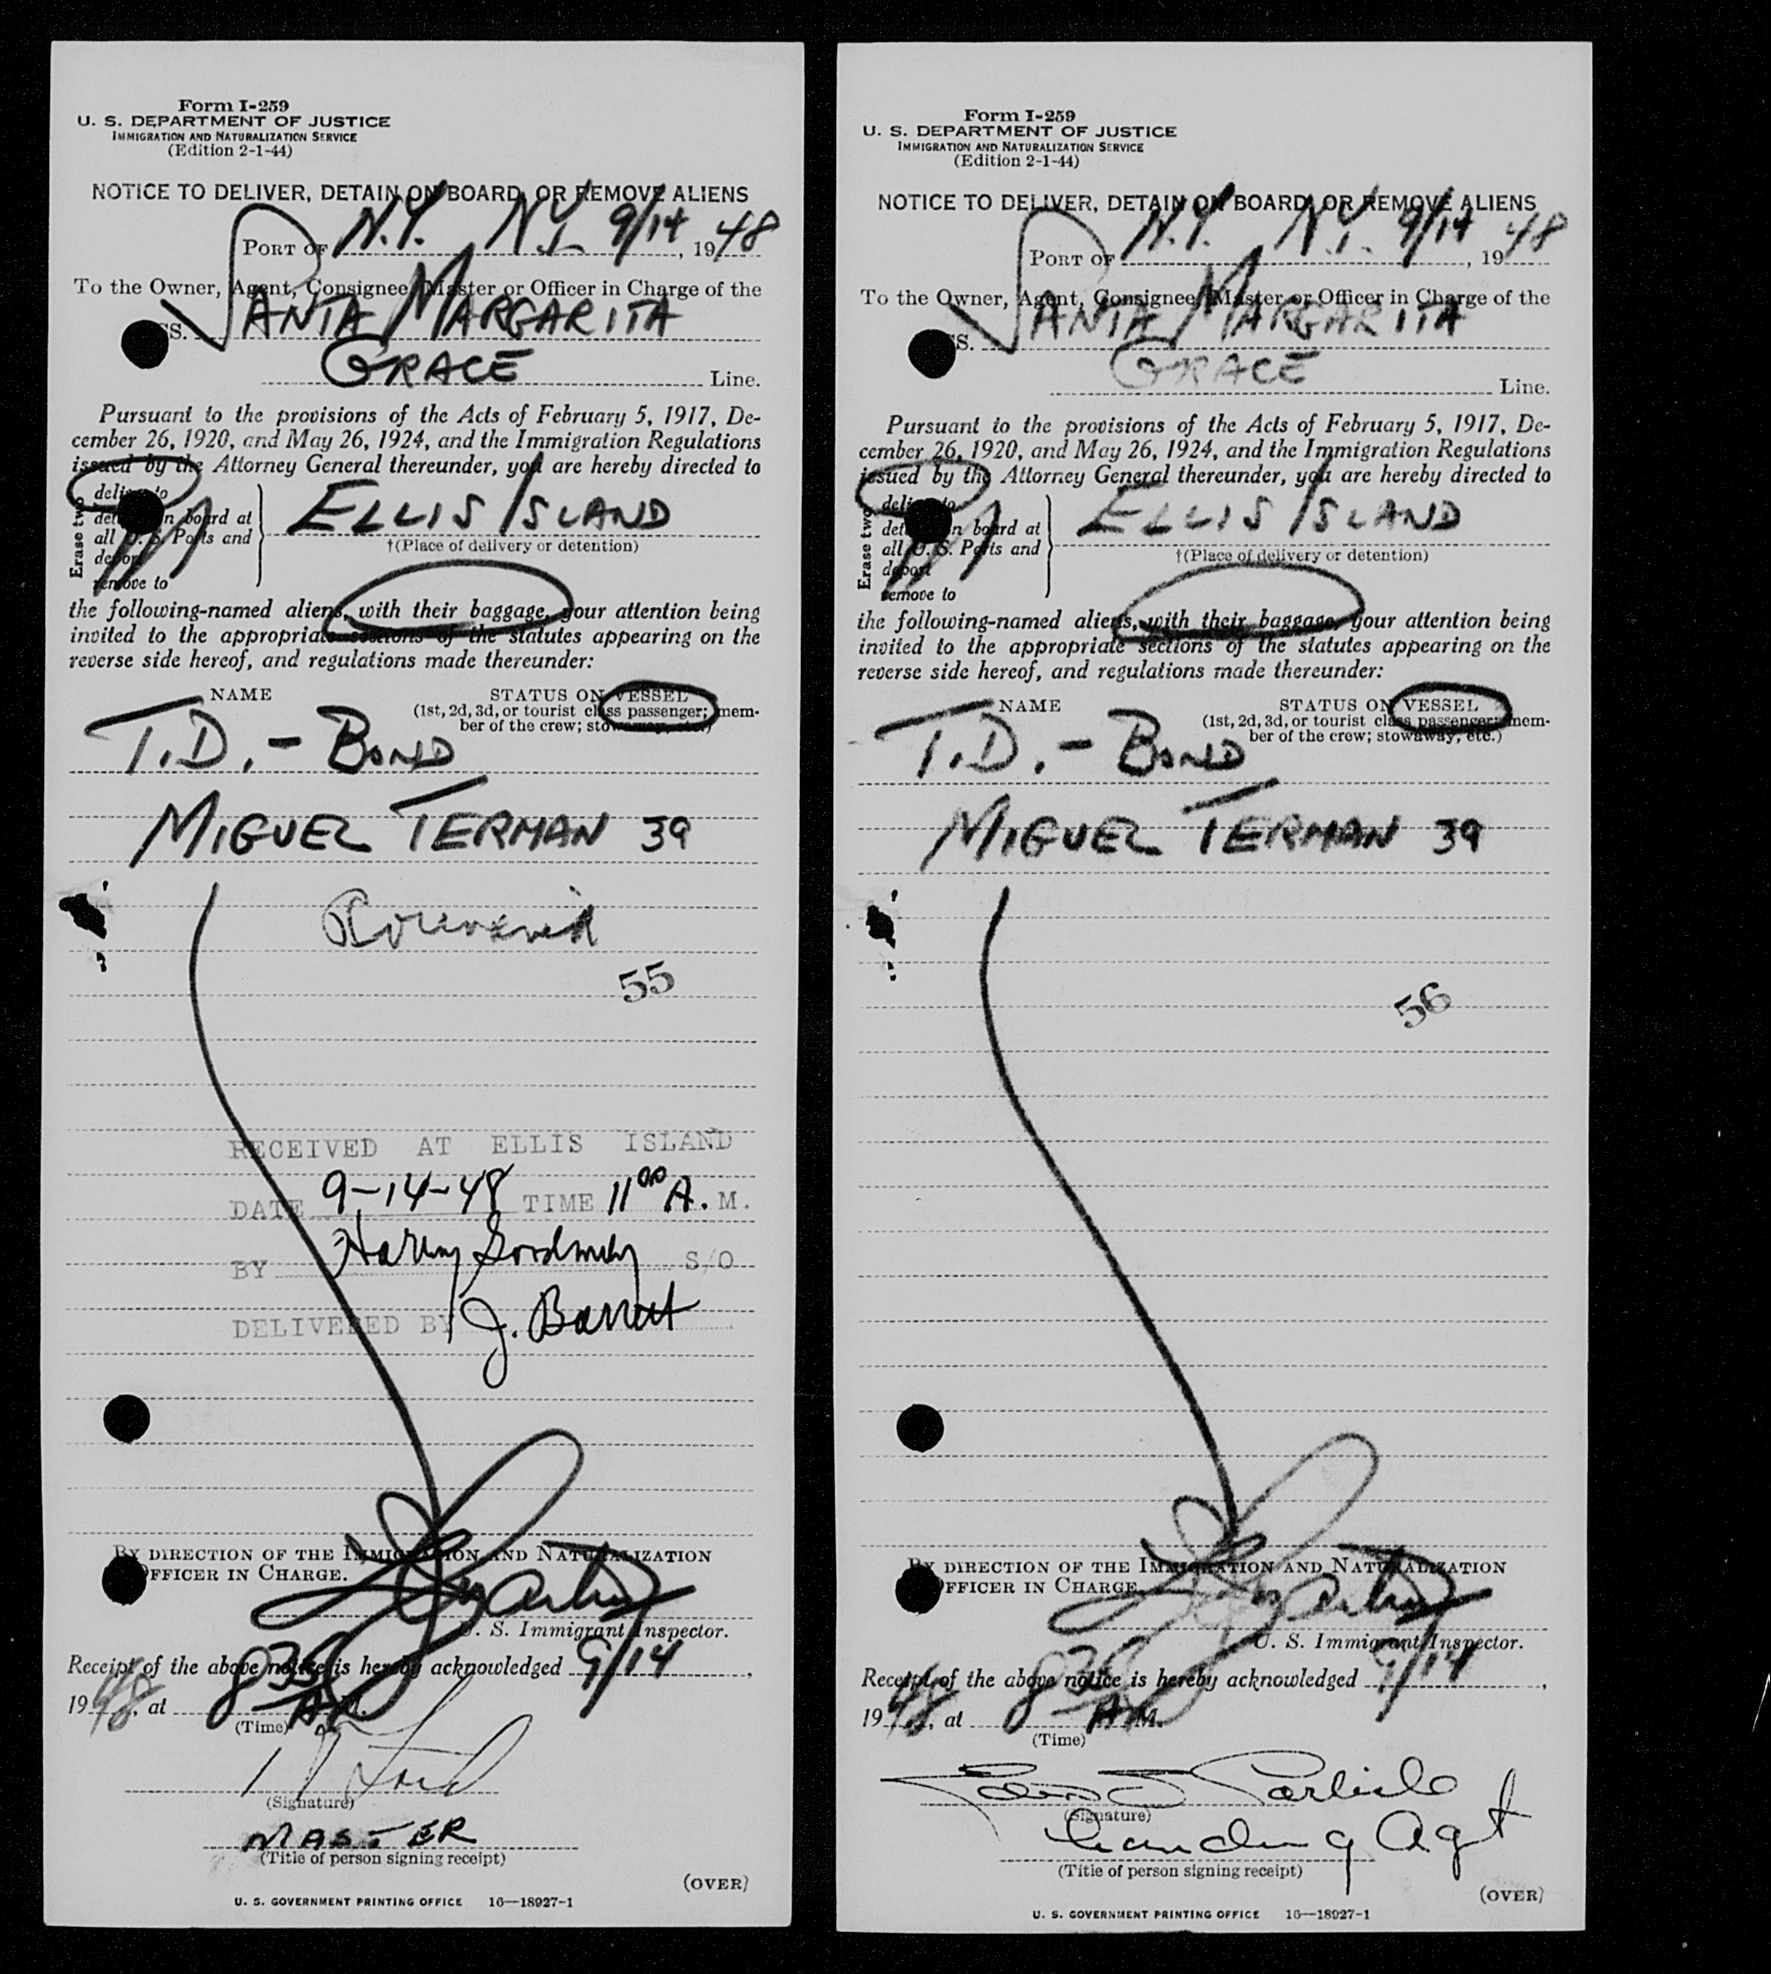 Form I-259
U. S. DEPARTMENT OF JUSTICE
IMMIGRATION AND NATURALIZATION SERVICE
(Edition 2-1-44)
NOTICE TO DELIVER, DETAIN ON BOARD, OR REMOVE ALIENS
PORT OF N.Y. N.Y. 9/14, 1948
To the Owner, Agent, Consignee, Master or Officer in Charge of the
SS. SANTA MARGARITA
GRACE Line.
Pursuant to the provisions of the Acts of February 5, 1917, De-
cember 26, 1920, and May 26, 1924, and the Immigration Regulations
issued by the Attorney General thereunder, you are hereby directed to
Erase two
deliver to
detain on board at
all U. S. Ports and
deport
remove to
ELLIS ISLAND
†(Place of delivery or detention)
the following-named aliens, with their baggage, your attention being
invited to the appropriate sections of the statutes appearing on the
reverse side hereof, and regulations made thereunder:
NAME
STATUS ON VESSEL
(1st, 2d, 3d, or tourist class passenger; mem-
ber of the crew; stowaway, etc.)
T.D. - BOND
MIGUEL TERMAN 39
55
RECEIVED AT ELLIS ISLAND
DATE 9-14-48 TIME 11 00 A. M.
BY Harry S/O
DELIVERED BY J. Barrett
BY DIRECTION OF THE IMMIGRATION AND NATURALIZATION
OFFICER IN CHARGE.
U. S. Immigrant Inspector.
Receipt of the above notice is hereby acknowledged 9/14,
1948, at 830 A M.
(Time)
(Signature)
MASTER
(Title of person signing receipt)
(OVER)
U. S. GOVERNMENT PRINTING OFFICE 16—18927-1
Form I-259
U. S. DEPARTMENT OF JUSTICE
IMMIGRATION AND NATURALIZATION SERVICE
(Edition 2-1-44)
NOTICE TO DELIVER, DETAIN ON BOARD, OR REMOVE ALIENS
PORT OF N.Y. N.Y. 9/14, 1948
To the Owner, Agent, Consignee, Master or Officer in Charge of the
SS. SANTA MARGARITA
GRACE Line.
Pursuant to the provisions of the Acts of February 5, 1917, De-
cember 26, 1920, and May 26, 1924, and the Immigration Regulations
issued by the Attorney General thereunder, you are hereby directed to
Erase two
deliver to
detain on board at
all U. S. Ports and
deport
remove to
ELLIS ISLAND
†(Place of delivery or detention)
the following-named aliens, with their baggage, your attention being
invited to the appropriate sections of the statutes appearing on the
reverse side hereof, and regulations made thereunder:
NAME
STATUS ON VESSEL
(1st, 2d, 3d, or tourist class passenger; mem-
ber of the crew; stowaway, etc.)
T.D. - BOND
MIGUEL TERMAN 39
56
BY DIRECTION OF THE IMMIGRATION AND NATURALIZATION
OFFICER IN CHARGE.
U. S. Immigrant Inspector.
Receipt of the above notice is hereby acknowledged 9/14,
1948, at 830 A M.
(Time)
Carlisle
(Signature)
Landing Agt
(Title of person signing receipt)
(OVER)
U. S. GOVERNMENT PRINTING OFFICE 16—18927-1